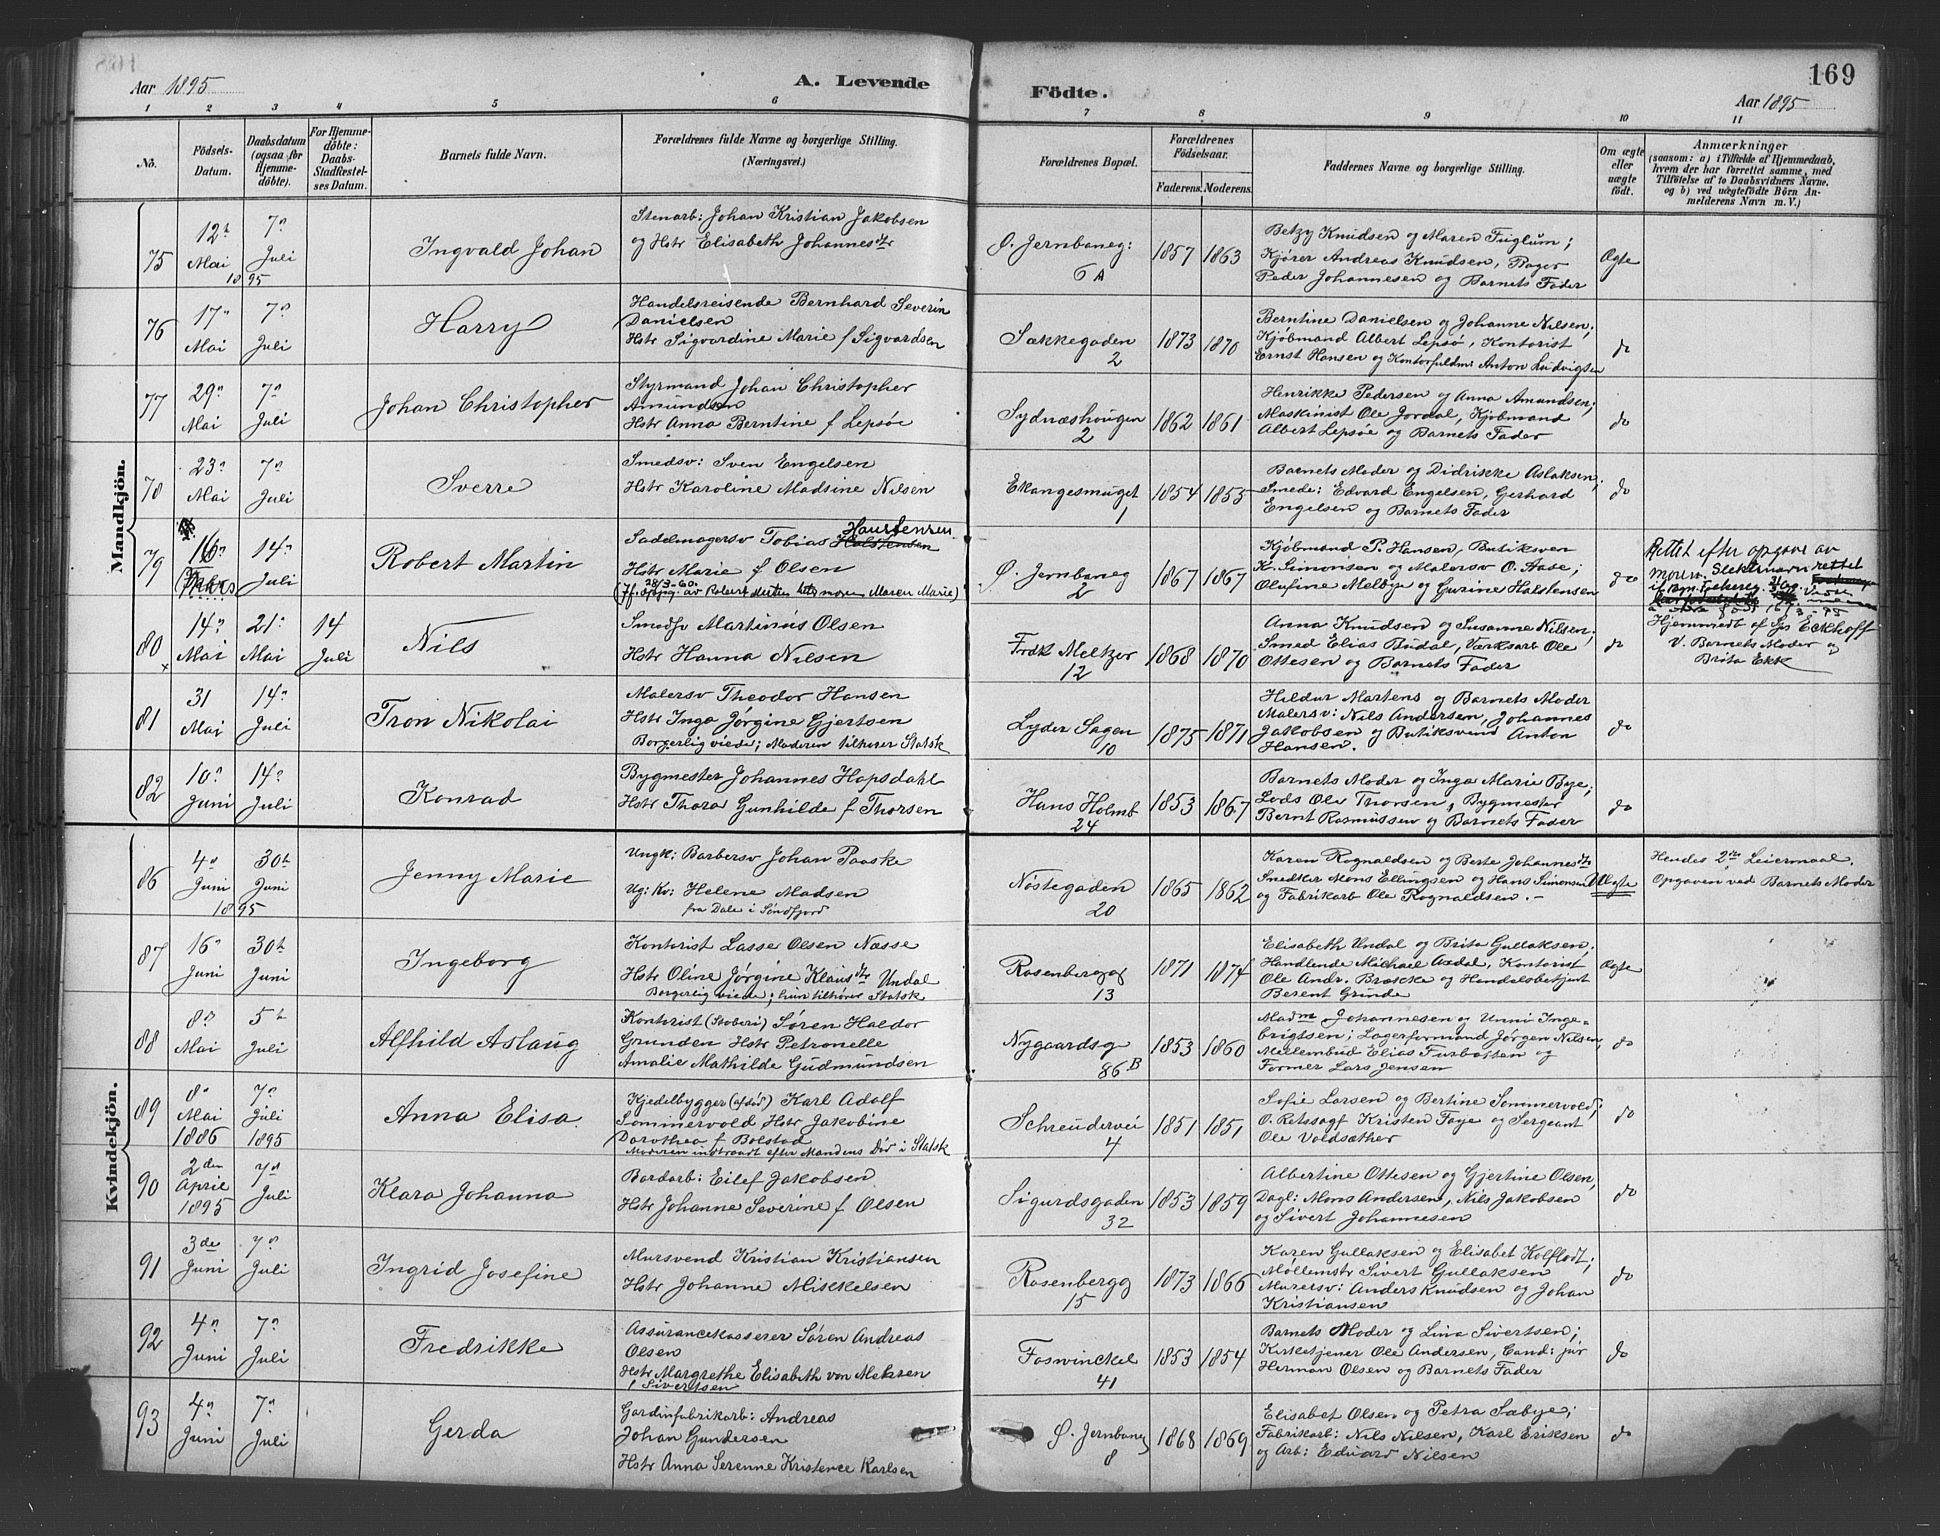 169
Aar 1895
A. Levende
Födte.
Aar 1895
1 2 3 4 5 6 7 8 9 10 11
No.
Födsels-
Datum.
Daabsdatum
(ogsaa for
Hjemme-
döbte).
For Hjemme-
döbte:
Daabs-
Stadfæstel-
ses Datum.
Barnets fulde Navn.
Forældrenes fulde Navne og borgerlige Stilling.
(Næringsvei.)
Forældrenes Bopæl.
Forældrenes
Födselsaar.
Faderens. Moderens.
Faddernes Navne og borgerlige Stilling.
Om ægte
eller
uægte
födt.
Anmærkninger
(saasom: a) i Tilfælde af Hjemmedaab,
hvem der har forrettet samme, med
Tilföielse af to Daabsvidners Navne,
og b) ved uægtefödte Börn An-
melderens Navn m. V.)
Mandkjön.
75
12te
Mai
1895
7de
Juli
Ingvald Johan
Stenarb: Johan Kristian Jakobsen
og Hstr Elisabeth Johannesdtr
Ø. Jernbaneg:
6 A
1857 1863
Betzy Knudsen og Maren Fuglum;
Kjører Andreas Knudsen, Bager
Peder Johannesen og Barnets Fader
Ægte
76
17de
Mai
7de
Juli
Harry
Handelsreisende Bernhard Severin
Danielsen
Hstr Sigvardine Marie f Sigvardsen
Sækkegaden
2
1873 1870
Berntine Danielsen og Johanne Nilsen;
Kjøbmand Albert Lepsø, Kontorist
Ernst Hansen og Kontorfuldm: Anton Ludvigsen
do
77
29de
Mai
7de
Juli
Johan Christopher
Styrmand Johan Christopher
Amundsen
Hstr Anna Berntine f Lepsøe
Sydnæshougen
2
1862 1861
Henrikke Pedersen og Anna Amundsen;
Maskinist Ole Jordal, Kjøbmand
Albert Lepsøe og Barnets Fader
do
78
23de
Mai
7de
Juli
Sverre
Smedsv: Sven Engelsen
Hstr Karoline Madsine Nilsen
Ekangesmuget
1
1854 1855
Barnets Moder og Didrikke Aslaksen;
Smede: Edvard Engelsen, Gerhard
Engelsen og Barnets Fader
do
79
16de
Mars
14de
Juli
Robert Martin
Haustensen
Sadelmagersv Tobias Halstensen
Hstr Marie f Olsen
28/3-60.
av Robert Martin moren Maren Marie)
Ø. Jernbaneg
2
1867 1867
Kjøbmand P. Hansen, Butiksven
K. Simonsen og Malersv O. Aase;
Olufine Melbye og Gurine Halstensen
do
Rettet efter opgave av
moren. Slektsnavn rettet
80
14de
Mai
21de
Mai
14
Juli
Nils
Smedsv Martinus Olsen
Hstr Hanna Nilsen
Fredk Meltzer
12
1868 1870
Anna Knudsen og Susanne Nilsen;
Smed Elias Budal, Værksarb Ole
Ottesen og Barnets Fader
do
Hjemmedt af Sp Eckhoff
V. Barnets Moder og
Brita Ekk
81
31
Mai
14de
Juli
Tron Nikolai
Malersv Theodor Hansen
Hstr Inga Jørgine Gjertsen
Borgerlig viede; Moderen tilhører Statsk
Lyder Sagen
10
1875 1871
Hildur Martens og Barnets Moder
Malersv: Nils Andersen, Johannes
Jakobsen og Butiksvend Anton
Hansen.
do
82
10de
Juni
14de
Juli
Konrad
Bygmester Johannes Hopsdahl
Hstr Thora Gunhilde f Thorsen
Hans Holmb
24
1853 1867
Barnets Moder og Inga Marie Bye;
Lods Ole Thorsen, Bygmester
Bernt Rasmussen og Barnets Fader
do
Kvindekjön.
86
4de
Juni
1895
30te
Juni
Jenny Marie
Ungk: Barbersv Johan Paaske
Ug: Kv: Helene Madsen
fra Dale i Søndfjord
Nøstegaden
20
1865 1862
Karen Rognaldsen og Berte Johannesdtr
Snedker Mons Ellingsen og Hans Simonsen
og Fabrikarb Ole Rognaldsen.-
Uægte
Hendes 2det Leiermaal.
Opgaven ved Barnets Moder
87
16de
Juni
30te
Juni
Ingeborg
Kontorist Lasse Olsen Næsse
Hstr Oline Jørgine Klausdtr Undal
Borgerlig viede; hun tilhører Statsk
Rosenbergg
13
1871 1874
Elisabeth Undal og Brita Gullaksen;
Handlende Michael Axdal, Kontorist
Ole Andr. Brække og Handelsbetjent
Berent Grinde
Ægte
88
8de
Mai
5te
Juli
Alfhild Aslaug
Kontorist (Stoberi) Søren Haldor
Grunden Hstr Petronelle
Amalie Mathilde Gudmundsen
Nygaardsg
86 B
1853 1860
Madm Johannesen og Unni Inge-
brigtsen; Lagerformand Jørgen Nilsen,
Møllembud Elias Furbotten og
Former Lars Jensen
do
89
8de
Mai
1886
7de
Juli
1895
Anna Elisa
Kjedelbygger (afdød) Karl Adolf
Sommervold Hstr Jakobine
Dorothea f Bolstad
Moderen indtraadt efter Mandens Død i Statsk
Schreudervei
4
1851 1851
Sofie Larsen og Bertine Sommervold;
O. Retssagf Kristen Faye og Sergeant
Ole Voldsæther
do
90
2den
April
1895
7de
Juli
Klara Johanna
Bordarb: Eilef Jakobsen
Hstr Johanne Severine f Olsen
Sigurdsgaden
32
1853 1859
Albertine Ottesen og Gjertine Olsen,
Dagl: Mons Andersen, Nils Jakobsen
og Sivert Johannesen
do
91
3de
Juni
7de
Juli
Ingrid Josefine
Mursvend Kristian Kristiansen
Hstr Johanne Mikkelsen
Rosenbergg
15
1873 1866
Karen Gullaksen og Elisabet Kolflodt;
Møllemstr Sivert Gullaksen
Murersv: Anders Knudsen og Johan
Kristiansen
do
92
4de
Juni
7de
Juli
Fredrikke
Assurancekasserer Søren Andreas
Olsen
Hstr Margrethe Elisabeth von Mehren
f Sivertsen
Foswinckel
41
1853 1854
Barnets Moder og Lina Sivertsen;
Kirketjener Ole Andersen, Cand: jur
Herman Olsen og Barnets Fader
do
93
4de
Juni
7de
Juli
Gerda
Gardinfabrikarb: Andreas
Johan Gundersen
Hstr Anna Serenne Kristence Karlsen
Ø. Jernbaneg
8
1868 1869
Elisabet Olsen og Petra Sæbye;
Fabrikarb: Nils Nilsen, Karl Eriksen
og Arb: Eduard Nilsen
do